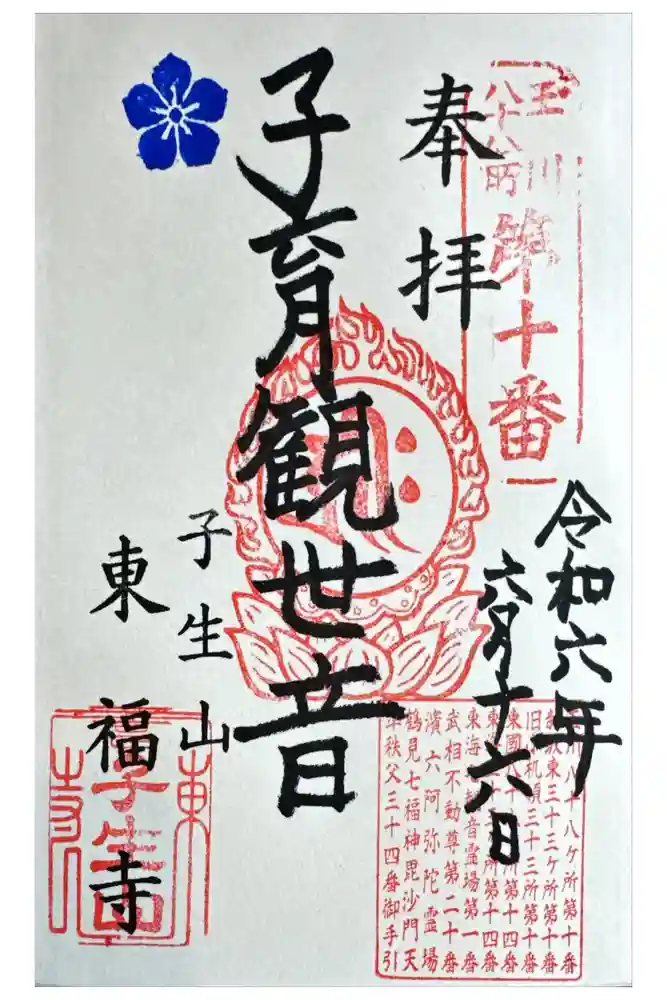 玉川
八十八ヶ所
第十番
奉拝
令和六年
六月十六日
子育観世音
子生山
東福寺
川八十八ケ所第十番
東三十三ケ所第十番
旧机領三十三所第十番
東國八十所第十四番
東所第十四番
東海音霊場第一番
武相不動尊第二十番
濱六阿弥陀霊場
鶴見七福神毘沙門天
秩父三十四番御手引
東
子生山
寺